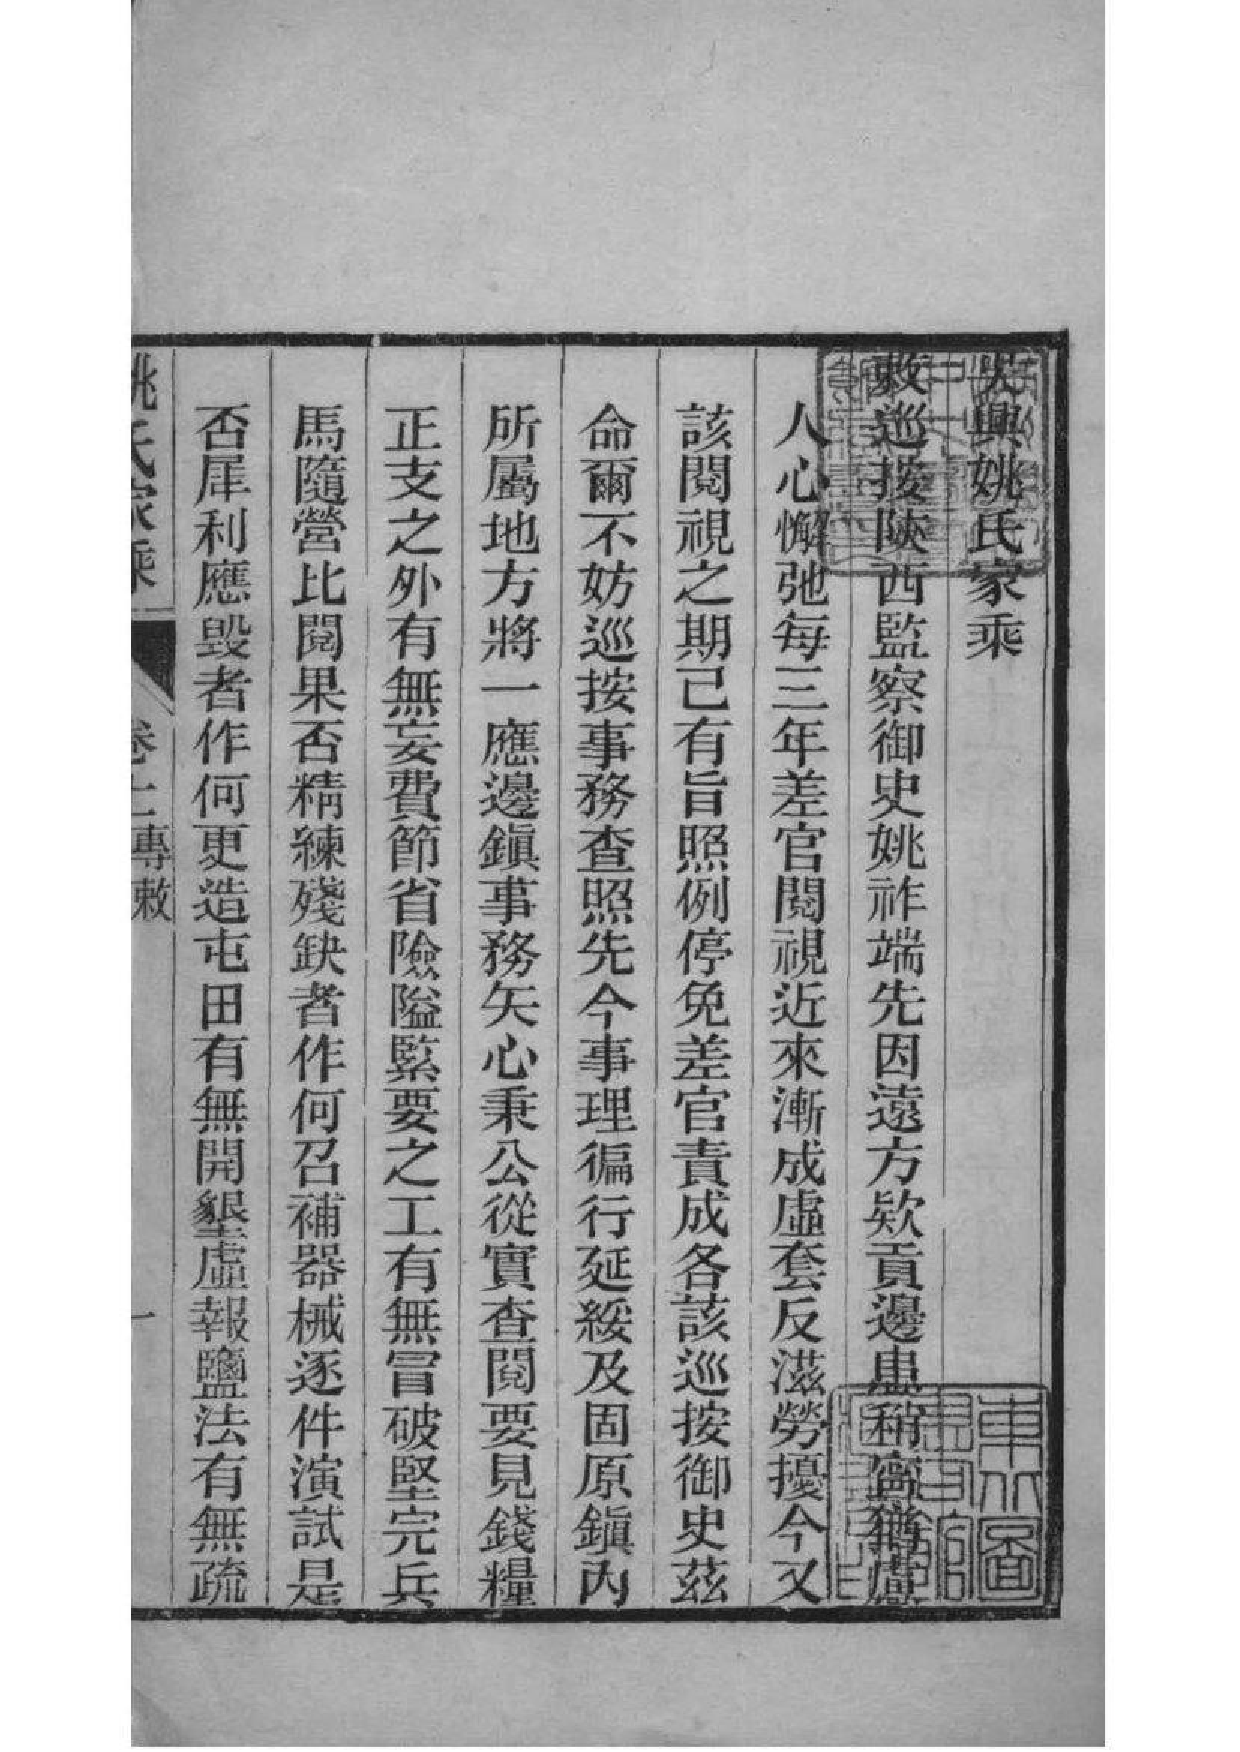 吳興姚氏家乘
敕巡按陝西監察御史姚祚端先因遠方欵貢邊患稍寧猶慮
人心懈弛每三年差官閱視近來漸成虛套反滋勞擾今又
該閱視之期已有旨照例停免差官責成各該巡按御史茲
命爾不妨巡按事務查照先今事理徧行延綏及固原鎭內
所屬地方將一應邊鎭事務矢心秉公從實查閱要見錢糧
正支之外有無妄費節省險隘緊要之工有無冒破堅完兵
馬隨營比閱果否精練殘缺者作何召補器械逐件演試是
否犀利應毀者作何更造屯田有無開墾虛報鹽法有無疏
姚氏家乘 卷十二 專敕 一